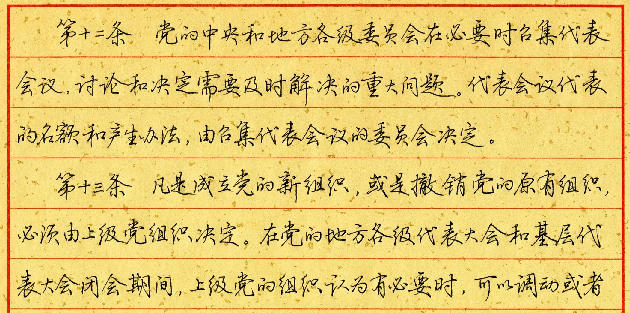 第十二条 党的中央和地方各级委员会在必要时召集代表
会议，讨论和决定需要及时解决的重大问题。代表会议代表
的名额和产生办法，由召集代表会议的委员会决定。
第十三条 凡是成立党的新组织，或是撤销党的原有组织，
必须由上级党组织决定。在党的地方各级代表大会和基层代
表大会闭会期间，上级党的组织认为有必要时，可以调动或者